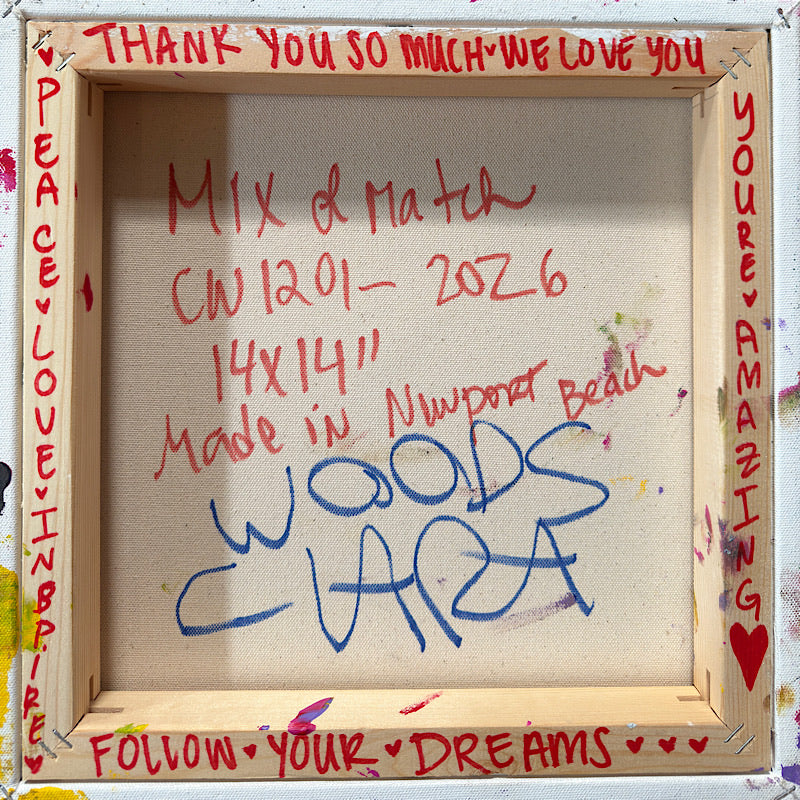 THANK YOU SO MUCH♥WE LOVE YOU
PEACE♥LOVE♥INBPIRE♥
YOURE♥AMAZING♥
Mix & Match
CW1201-2026
14x14"
Made in Newport Beach
WOODS
CLARA
FOLLOW♥YOUR♥DREAMS♥♥♥